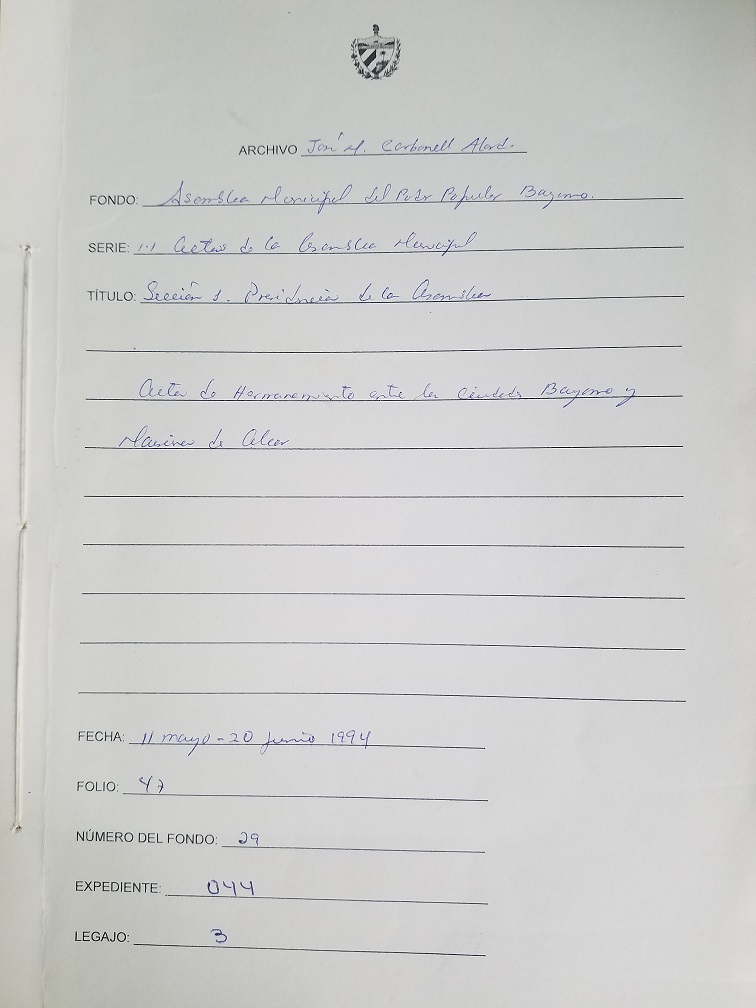 ARCHIVO José M. Carbonell Alard.
FONDO: Asamblea Municipal del Poder Popular Bayamo.
SERIE: 1.1 Actas de la Asamblea Municipal
TÍTULO: Sección 1. Presidencia de la Asamblea
Acta de Hermanamiento entre las ciudades Bayamo y
de
FECHA: 11 mayo - 20 junio 1994
FOLIO: 47
NÚMERO DEL FONDO: 29
EXPEDIENTE: 044
LEGAJO: 3